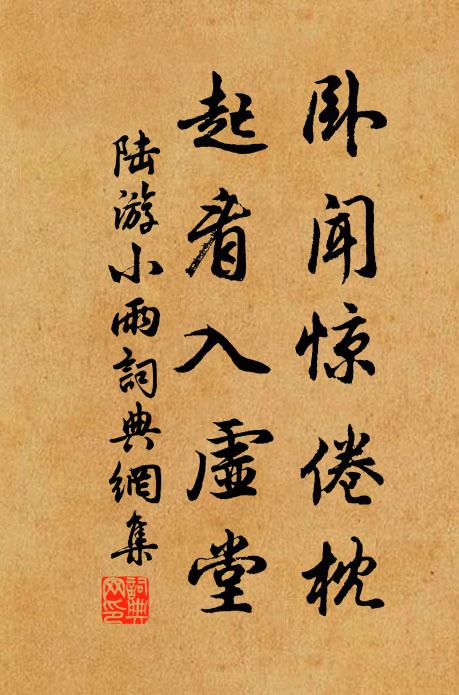 卧闻惊倦枕
起看入虚堂
陆游小雨詞典網集
詞典
网印